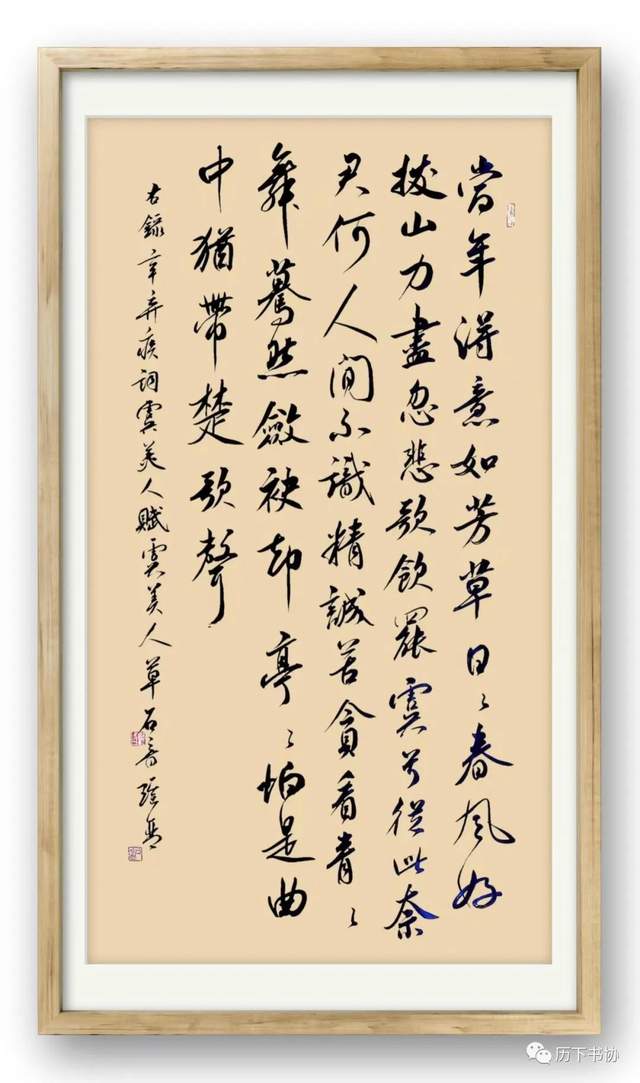 當年得意如芳草日〻春風好
拔山力盡忽悲歌飲罷虞兮從此奈
君何人間不識精誠苦貪看青〻
舞驀然斂袂却亭〻怕是曲
中猶帶楚歌聲
右錄辛弃疾詞虞美人賦虞美人草
历下书协